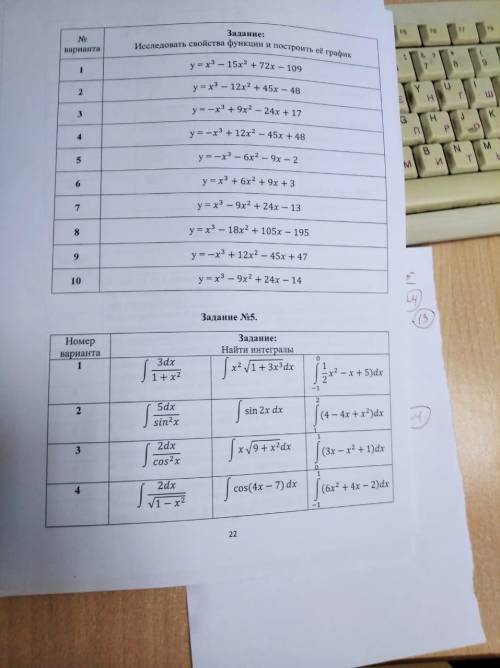 № варианта
Задание:
Исследовать свойства функции и построить её график
1 y = x³ − 15x² + 72x − 109
2 y = x³ − 12x² + 45x − 48
3 y = −x³ + 9x² − 24x + 17
4 y = −x³ + 12x² − 45x + 48
5 y = −x³ − 6x² − 9x − 2
6 y = x³ + 6x² + 9x + 3
7 y = x³ − 9x² + 24x − 13
8 y = x³ − 18x² + 105x − 195
9 y = −x³ + 12x² − 45x + 47
10 y = x³ − 9x² + 24x − 14
Задание №5.
Номер варианта
Задание:
Найти интегралы
1 ∫ 3dx/(1 + x²) ∫ x² √(1 + 3x³) dx ∫₋₁⁰ (1/2 x² − x + 5)dx
2 ∫ 5dx/sin²x ∫ sin 2x dx ∫₁² (4 − 4x + x²)dx
3 ∫ 2dx/cos²x ∫ x √(9 + x²) dx ∫₀¹ (3x − x² + 1)dx
4 ∫ 2dx/√(1 − x²) ∫ cos(4x − 7) dx ∫₋₁¹ (6x² + 4x − 2)dx
22